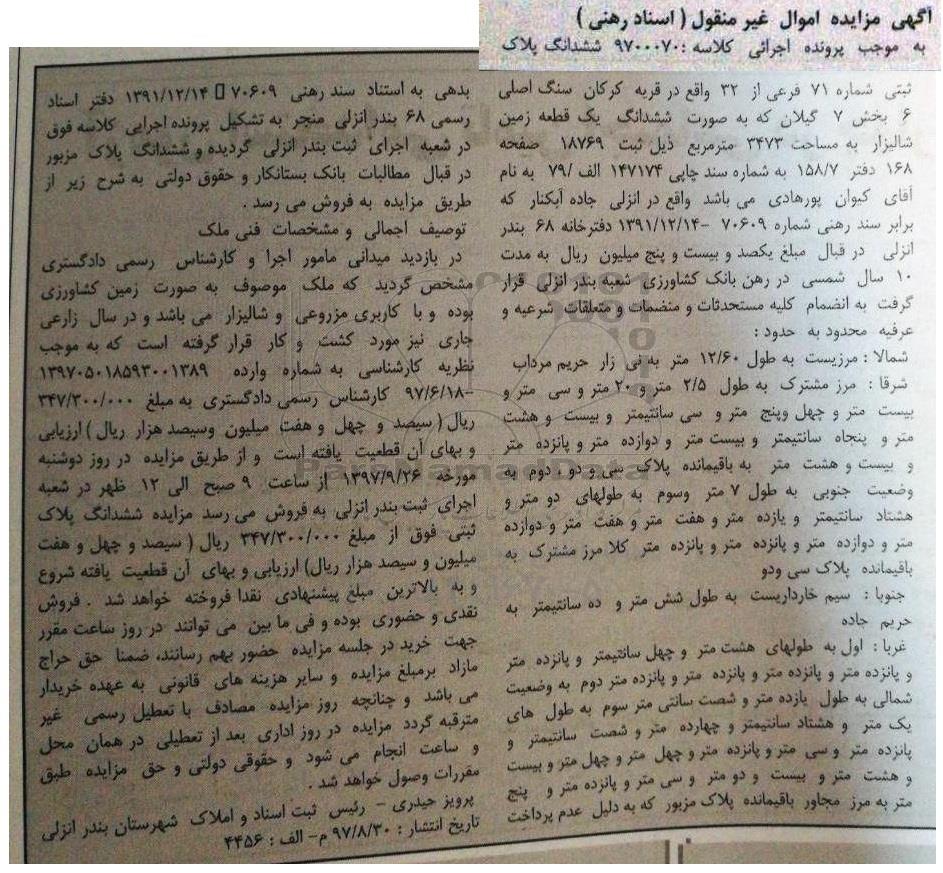 آگهی مزایده اموال غیر منقول (اسناد رهنی)
به موجب پرونده اجرائی کلاسه :۹۷۰۰۰۷۰ ششدانگ پلاک
ثبتی شماره ۷۱ فرعی از ۳۲ واقع در قریه کرکان سنگ اصلی
۶ بخش ۷ گیلان که به صورت ششدانگ یک قطعه زمین
شالیزار به مساحت ۳۴۷۳ مترمربع ذیل ثبت ۱۸۷۶۹ صفحه
۱۶۸ دفتر ۱۵۸/۷ به شماره سند چاپی ۱۴۷۱۷۴ الف /۷۹ به نام
آقای کیوان پورهادی می باشد واقع در انزلی جاده آبکنار که
برابر سند رهنی شماره ۷۰۶۰۹ –۱۳۹۱/۱۲/۱۴ دفترخانه ۶۸ بندر
انزلی در قبال مبلغ یکصد و بیست و پنج میلیون ریال به مدت
۱۰ سال شمسی در رهن بانک کشاورزی شعبه بندر انزلی قرار
گرفت به انضمام کلیه مستحدثات و منضمات و متعلقات شرعیه و
عرفیه محدود به حدود :
شمالا : مرزیست به طول ۱۲/۶۰ متر به نی زار حریم مرداب
شرقا : مرز مشترک به طول ۲/۵ متر و ۲۰ متر و سی متر و
بیست متر و چهل وپنج متر و سی سانتیمتر و بیست و هشت
متر و پنجاه سانتیمتر و بیست متر و دوازده متر و پانزده متر
و بیست و هشت متر به باقیمانده پلاک سی و دو ، دوم به
وضعیت جنوبی به طول ۷ متر وسوم به طولهای دو متر و
هشتاد سانتیمتر و یازده متر و هفت متر و هفت متر و دوازده
متر و دوازده متر و پانزده متر و پانزده متر کلا مرز مشترک به
باقیمانده پلاک سی ودو
جنوبا : سیم خارداریست به طول شش متر و ده سانتیمتر به
حریم جاده
غربا : اول به طولهای هشت متر و چهل سانتیمتر و پانزده متر
و پانزده متر و پانزده متر و پانزده متر و پانزده متر دوم به وضعیت
شمالی به طول یازده متر و شصت سانتی متر سوم به طول های
یک متر و هشتاد سانتیمتر و چهارده متر و شصت سانتیمتر و
پانزده متر و سی متر و پانزده متر و چهل متر و چهل متر و بیست
و هشت متر و بیست و دو متر و سی متر و پانزده متر و پنج
متر به مرز مجاور باقیمانده پلاک مزبور که به دلیل عدم پرداخت
بدهی به استناد سند رهنی ۷۰۶۰۹ ▯ ۱۳۹۱/۱۲/۱۴ دفتر اسناد
رسمی ۶۸ بندر انزلی منجر به تشکیل پرونده اجرایی کلاسه فوق
در شعبه اجرای ثبت بندر انزلی گردیده و ششدانگ پلاک مزبور
در قبال مطالبات بانک بستانکار و حقوق دولتی به شرح زیر از
طریق مزایده به فروش می رسد .
توصیف اجمالی و مشخصات فنی ملک
در بازدید میدانی مامور اجرا و کارشناس رسمی دادگستری
مشخص گردید که ملک موصوف به صورت زمین کشاورزی
بوده و با کاربری مزروعی و شالیزار می باشد و در سال زارعی
جاری نیز مورد کشت و کار قرار گرفته است که به موجب
نظریه کارشناسی به شماره وارده ۱۳۹۷۰۵۰۱۸۵۹۳۰۰۱۳۸۹
–۹۷/۶/۱۸ کارشناس رسمی دادگستری به مبلغ ۳۴۷/۳۰۰/۰۰۰
ریال ( سیصد و چهل و هفت میلیون وسیصد هزار ریال ) ارزیابی
و بهای آن قطعیت یافته است و از طریق مزایده در روز دوشنبه
مورخه ۱۳۹۷/۹/۲۶ از ساعت ۹ صبح الی ۱۲ ظهر در شعبه
اجرای ثبت بندر انزلی به فروش می رسد مزایده ششدانگ پلاک
ثبتی فوق از مبلغ ۳۴۷/۳۰۰/۰۰۰ ریال ( سیصد و چهل و هفت
میلیون و سیصد هزار ریال) ارزیابی و بهای آن قطعیت یافته شروع
و به بالاترین مبلغ پیشنهادی نقدا فروخته خواهد شد . فروش
نقدی و حضوری بوده و فی ما بین می توانند در روز ساعت مقرر
جهت خرید در جلسه مزایده حضور بهم رسانند، ضمنا حق حراج
مازاد برمبلغ مزایده و سایر هزینه های قانونی به عهده خریدار
می باشد و چنانچه روز مزایده مصادف با تعطیل رسمی غیر
مترقبه گردد مزایده در روز اداری بعد از تعطیلی در همان محل
و ساعت انجام می شود و حقوقی دولتی و حق مزایده طبق
مقررات وصول خواهد شد .
پرویز حیدری – رئیس ثبت اسناد و املاک شهرستان بندر انزلی
تاریخ انتشار : ۹۷/۸/۳۰ م– الف : ۴۴۵۶